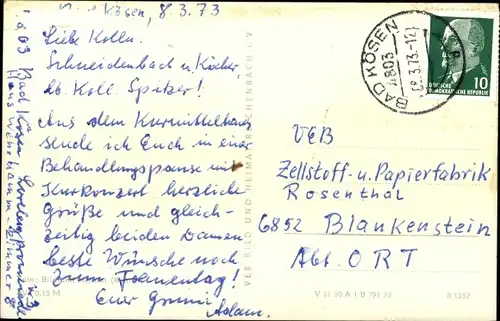 Kösen, 8.3.73
Liebe Kolln.
Schneidenbach u. Köcher
lb. Koll. Spitzer!
Aus dem Kurmittelhaus
sende ich Euch in einer
Behandlungspause mit
Kurkonzert herzliche
Grüße und gleich-
zeitig beiden Damen
beste Wünsche noch
zum Frauentag!
Euer
Adam.
4803 Bad Kösen,
Zimmer 8
VEB BILD UND HEIMAT REICHENBACH i. V.
V 11 50 A 1 B
B 1357
BAD KÖSEN
4803
-8.3.73-12
10
DEUTSCHE
DEMOKRATISCHE REPUBLIK
VEB
Zellstoff- u. Papierfabrik
Rosenthal
6852 Blankenstein
Abt. ORT